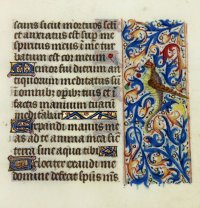 scuris sicut mortuos seculi
et anxiatus est sup me
spiritus meus in me tur
batum est cor meum
Memor fui dierum an
tiquorum meditatus su
in omnib; opib; tuis et i
factis manuum tuaru
meditabar
Expandi manus me
as ad te anima mea sic
terra sine aqua tibi
Velociter exaudi me
domine defecit sps ms